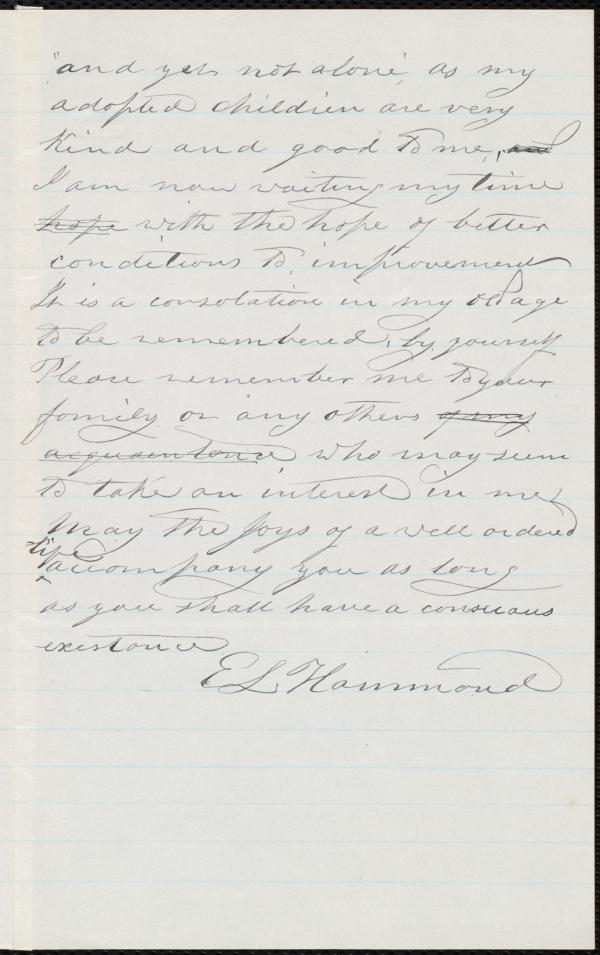 "and yet not alone", as my
adopted children are very
kind and good to me, and
I am now waiting my time
hope with the hope of better
conditions to improvement
It is a consolation in my old age
to be remembered, by yourself
Please remember me to your
family or any others of my
acquaintance who may seem
to take an interest in me,
May the Joys of a well ordered
life
accompany you as long
as you shall have a consuous
existance
E L Hammond